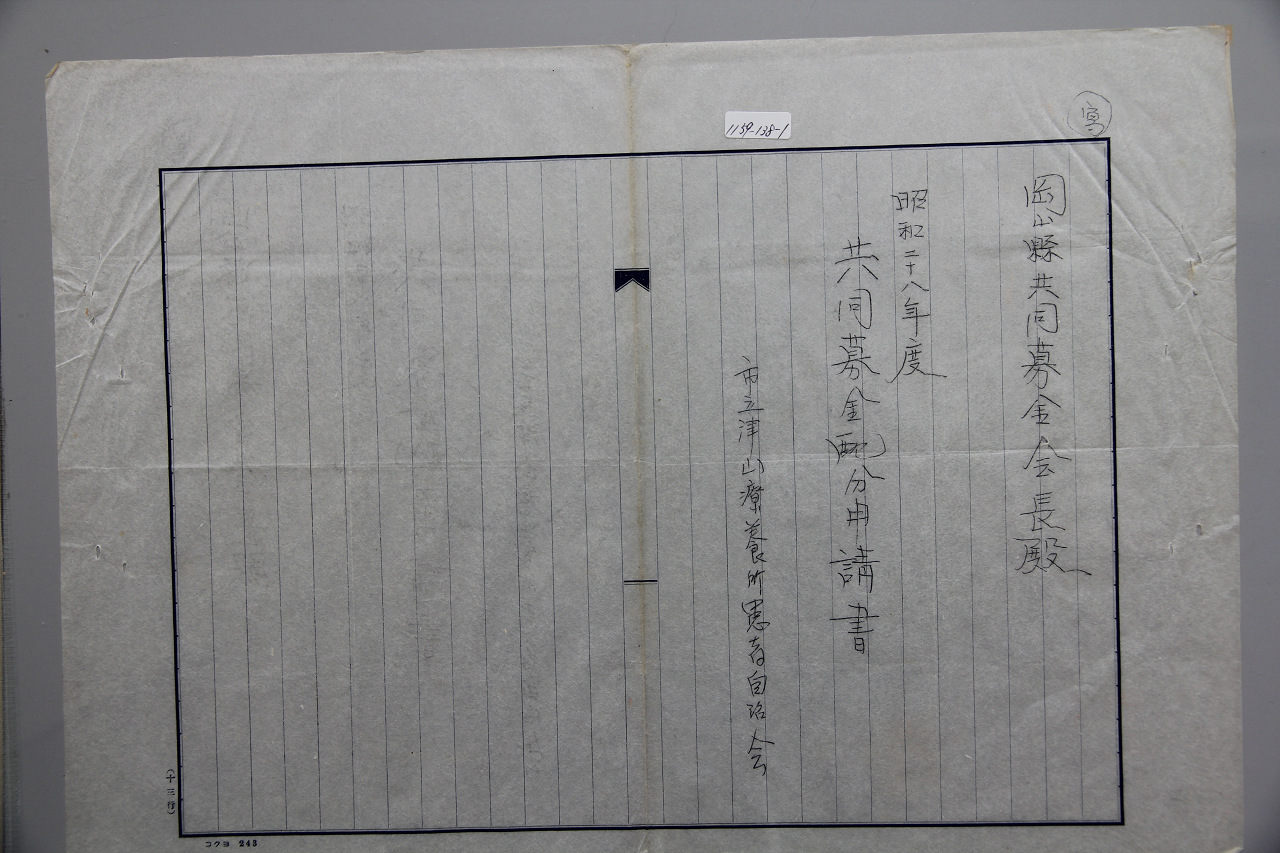 寫
1159-138-1
岡山縣共同募金会長殿
昭和二十八年度
共同募金配分申請書
市立津山療養所患者自治会
(十三行)
コクヨ 243